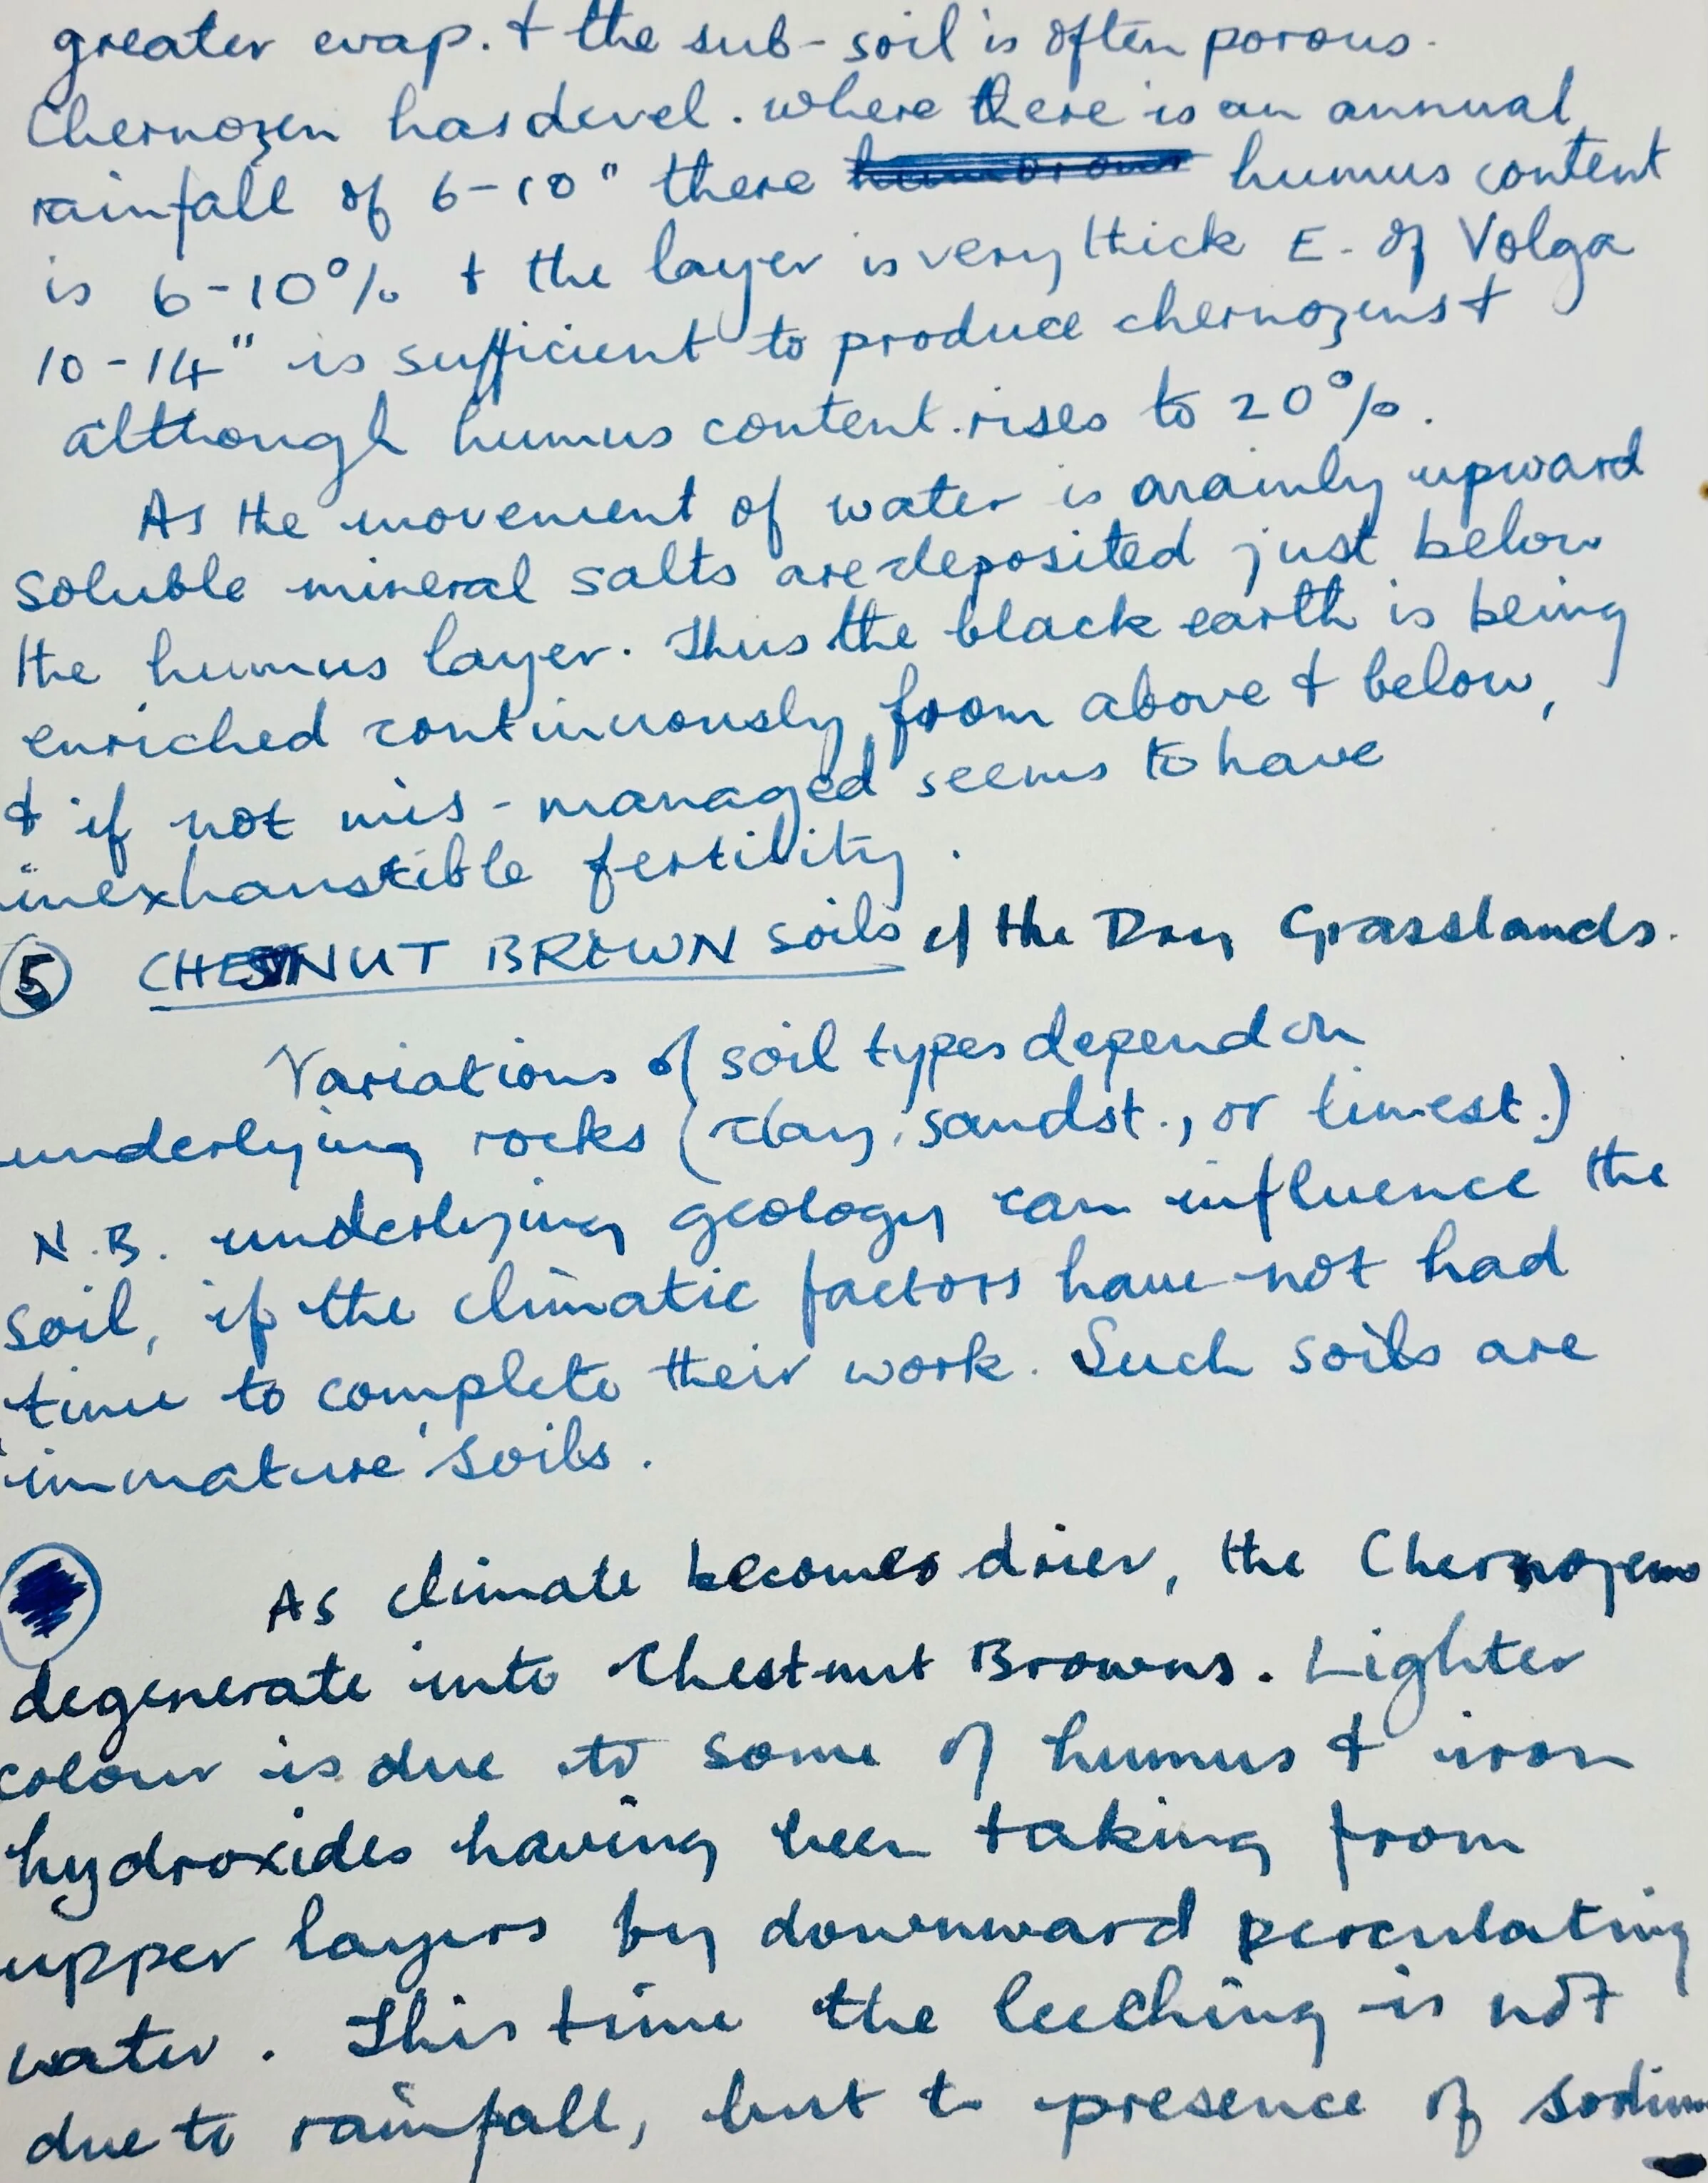 greater evap. + the sub-soil is often porous.
Chernozen has devel. where there is an annual
rainfall of 6-10" there humus content
is 6-10% + the layer is very thick E. of Volga
10-14" is sufficient to produce chernozens +
although humus content rises to 20%.
As the movement of water is mainly upward
soluble mineral salts are deposited just below
the humus layer. Thus the black earth is being
enriched continuously from above + below,
+ if not mis-managed seems to have
inexhaustible fertility.
5 CHESTNUT BROWN Soils of the Dry Grasslands.
Variations of soil types depend on
underlying rocks (clay, sandst., or limest.)
N.B. underlying geology can influence the
soil, if the climatic factors have not had
time to complete their work. Such soils are
'immature' soils.
As climate becomes drier, the Chernozems
degenerate into Chestnut Browns. Lighter
colour is due to some of humus + iron
hydroxides having been taking from
upper layers by downward perculating
water. This time the leeching is not
due to rainfall, but to presence of sodium